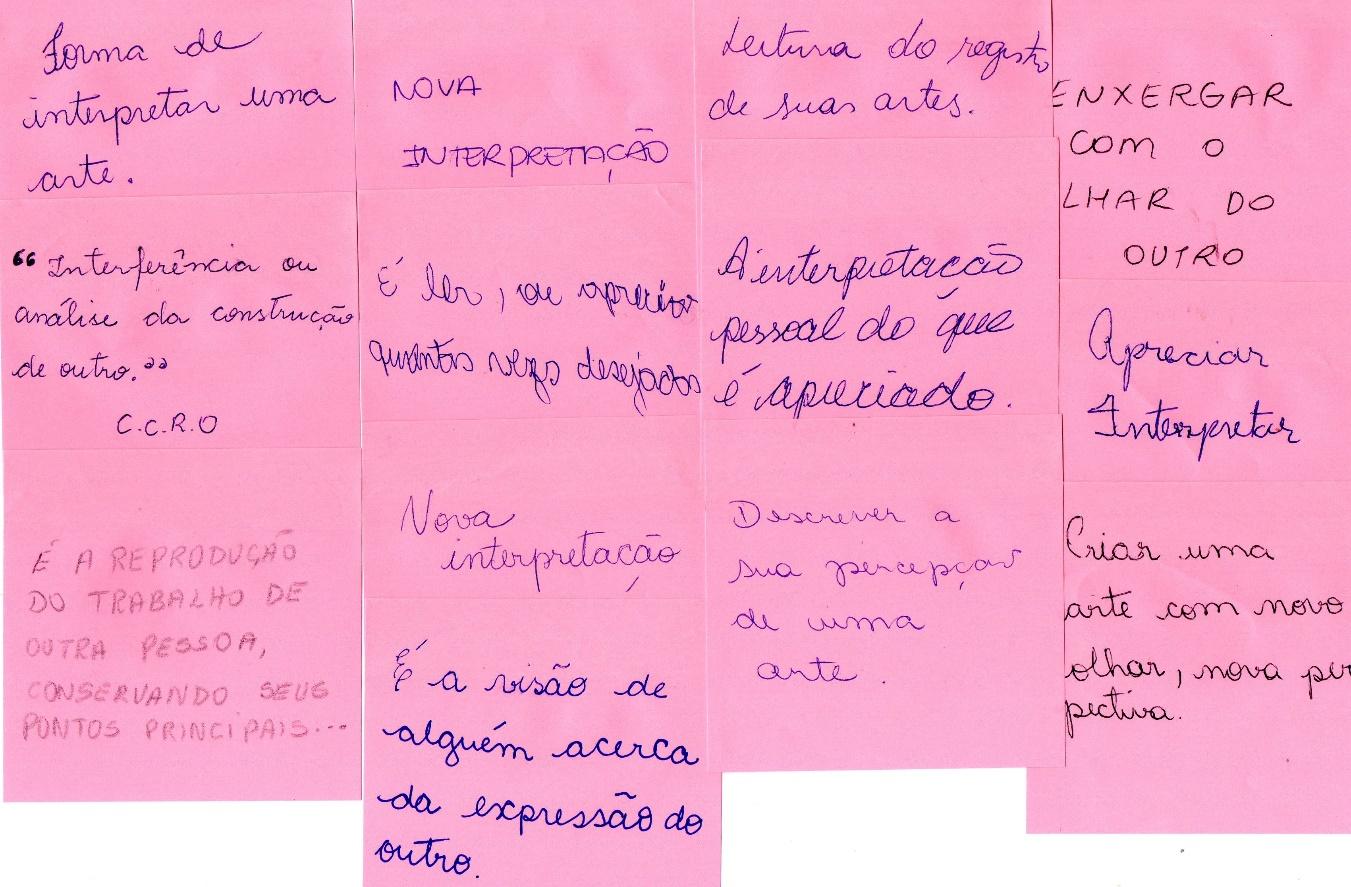 Forma de
interpretar uma
arte.
"Interferência ou
análise da construção
de outro."
C.C.R.O
É A REPRODUÇÃO
DO TRABALHO DE
OUTRA PESSOA,
CONSERVANDO SEUS
PONTOS PRINCIPAIS...
NOVA
INTERPRETAÇÃO
É ler, ou apreciar
quantas vezes desejados
Nova
interpretação
É a visão de
alguém acerca
da expressão do
outro.
Leitura do registro
de suas artes.
A interpretação
pessoal do que
é apreciado.
Descrever a
sua percepção
de uma
arte.
ENXERGAR
COM O
LHAR DO
OUTRO
Apreciar
Interpretar
Criar uma
arte com novo
olhar, nova per
pectiva.